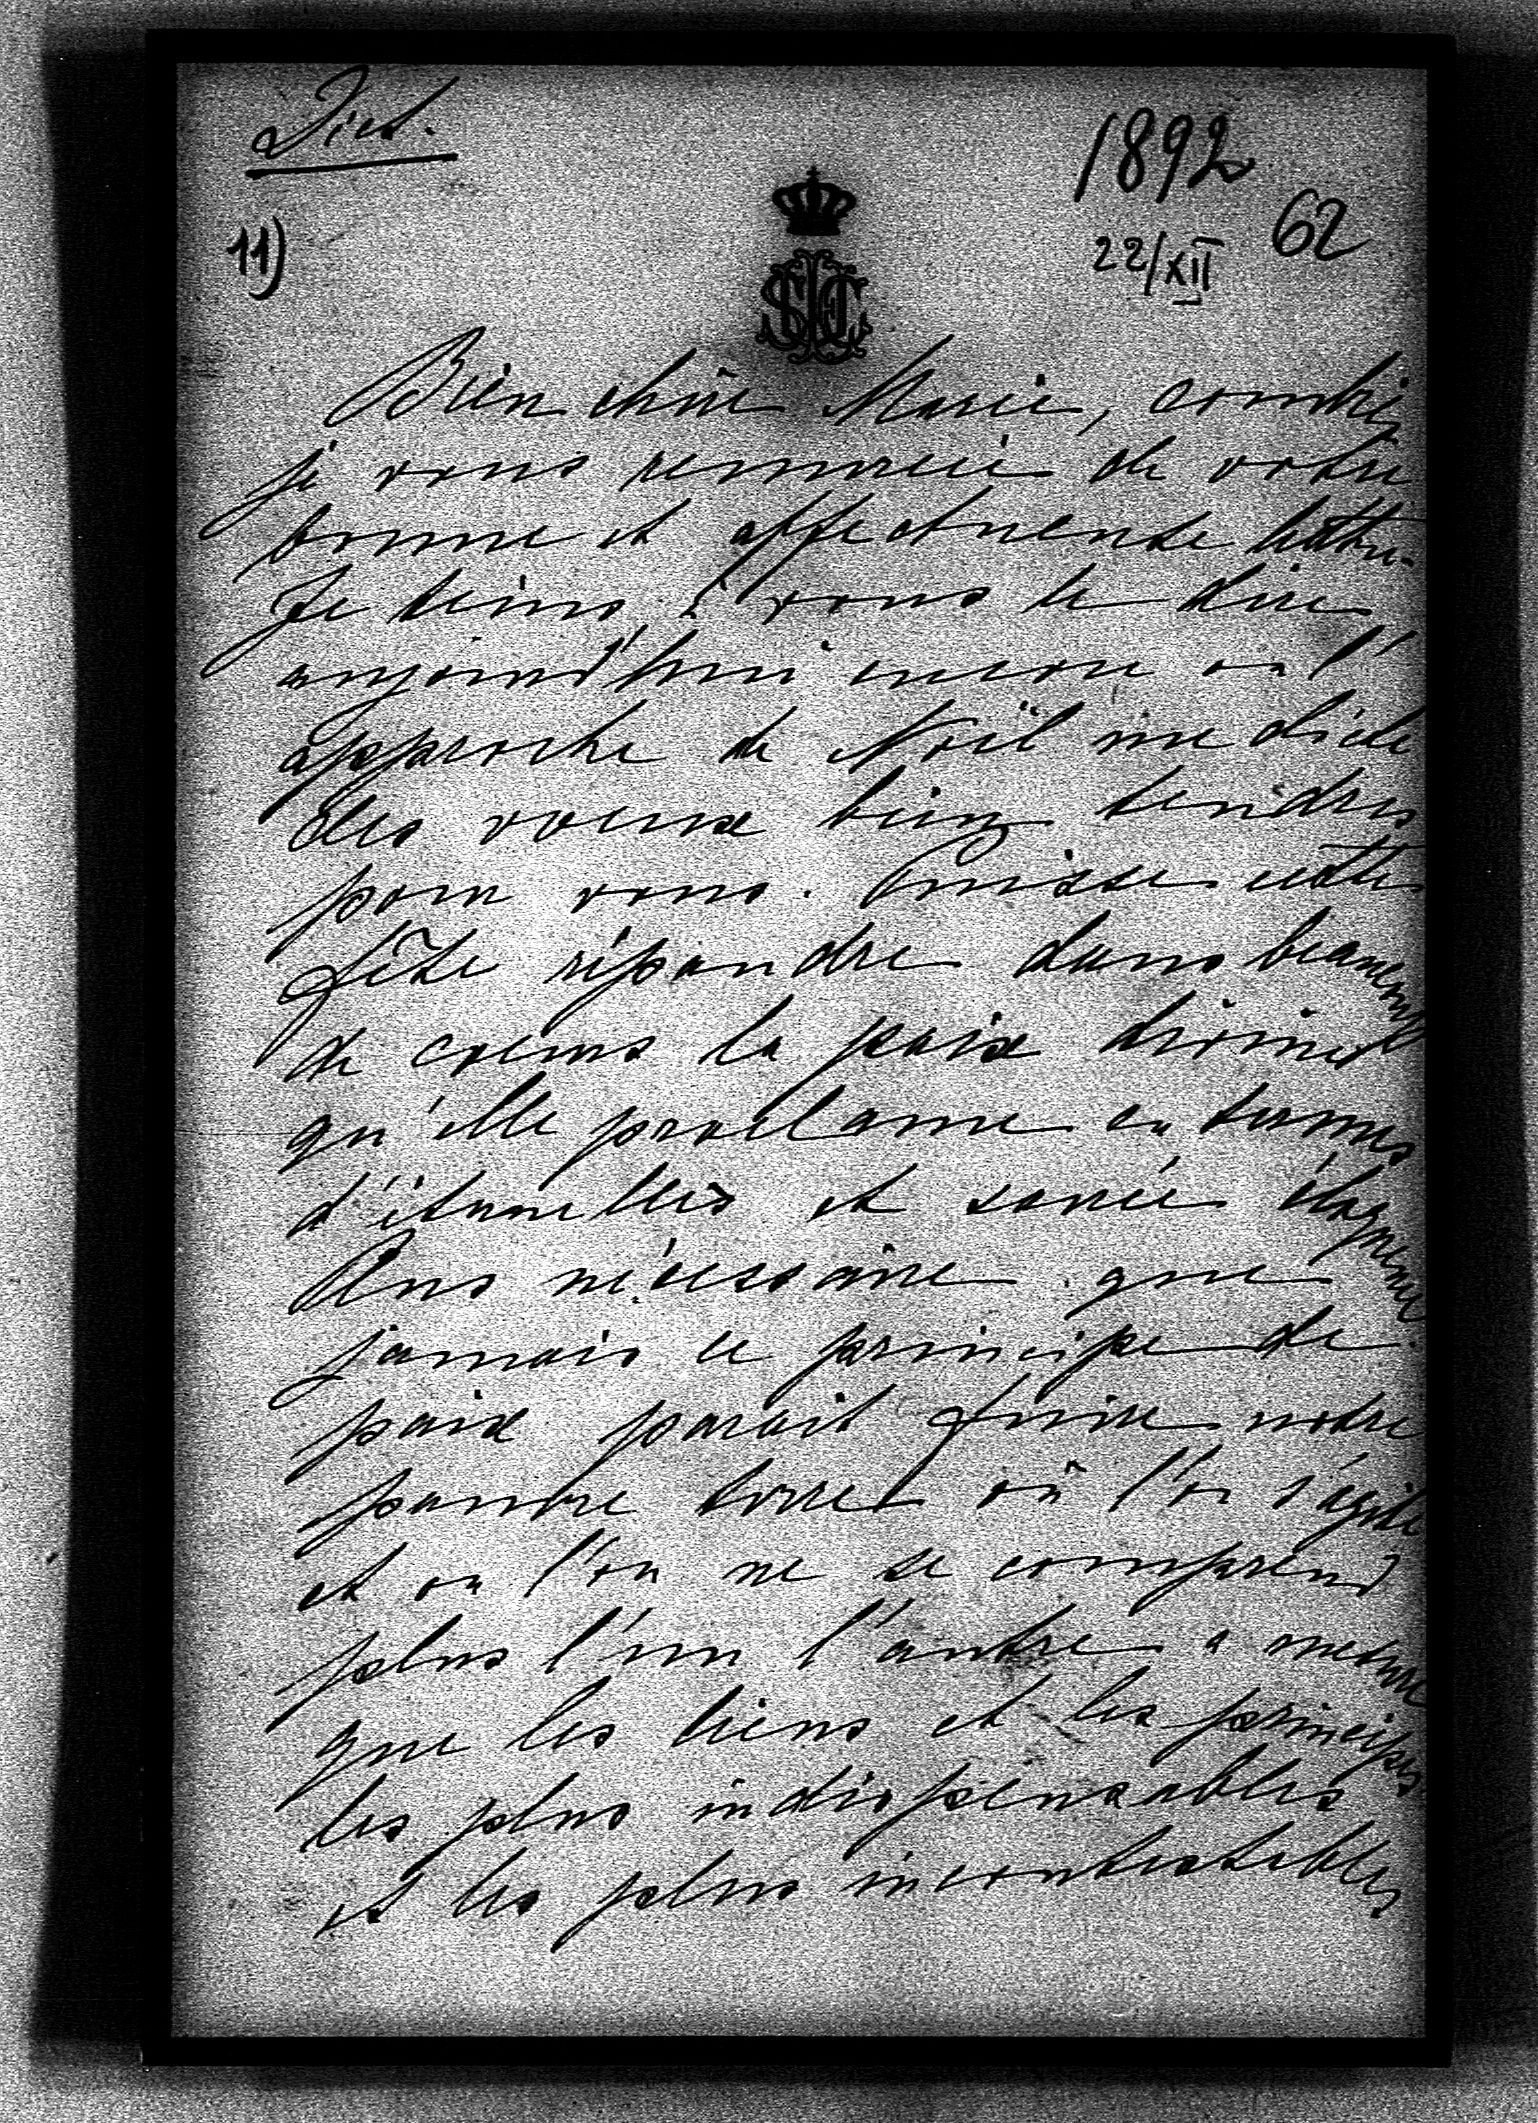 Dict.
1892
62
11)
22/XII
Bien chère Marie, combien
je vous remercie de votre
bonne et affectueuse lettre.
Je tiens à vous le dire
aujourd'hui encore où l'
approche de Noël me dicte
des voeux bien tendres
pour vous. Puisse cette
fête répandre dans beaucoup
de coeurs la paix divine
qu'elle proclame en termes
d'éternelle et sainte
Plus nécessaire que
jamais ce principe de
paix parait fuire notre
pauvre terre où l'on s'agite
et où l'on ne se comprend
plus l'un l'autre à mesure
que les liens et les principes
les plus indispensables
et les plus incontestables